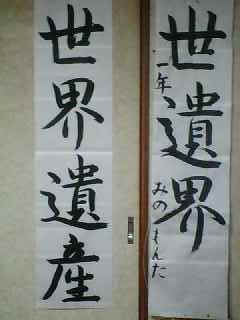 世界遺産
世遺界
一年
みのもんた